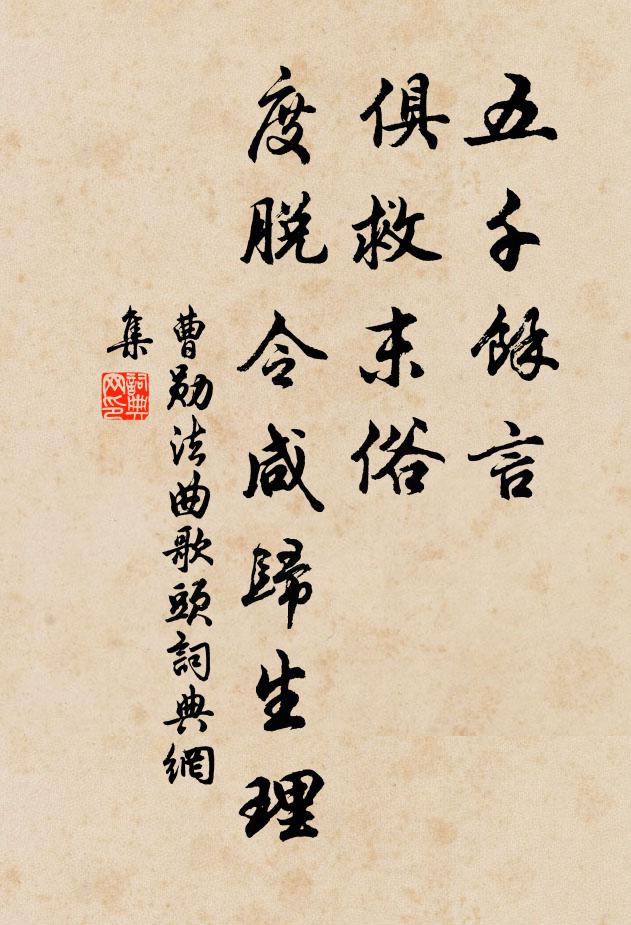 五千餘言
俱救末俗
度脱令咸歸生理
曹勛法曲歌頭詞典網
集
詞典
网印